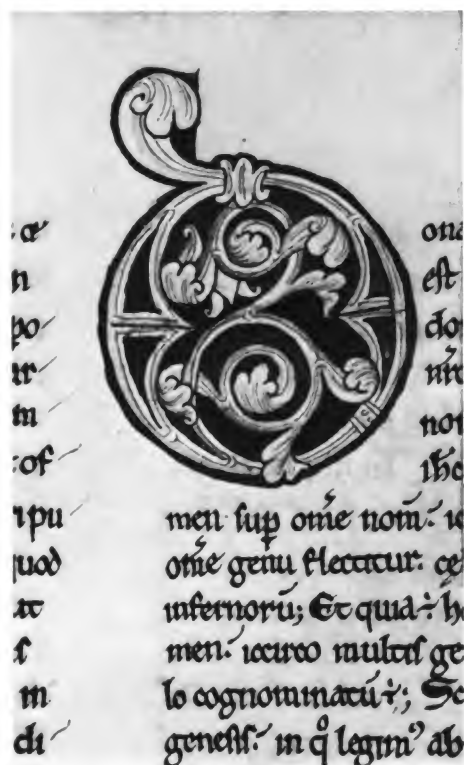 œ
n
po
ur
m
of
ripu
quod
at
s
m
di
ona
est
do
nr̄e
non
ihe
men sup̄ om̄e nom̄. ic
om̄e genu flectitur. ce
infernorū; Et quia ÷ ho
men. iccirco multis ge
lo cognominatū ÷; Sc
genesis. in q̊ legimꝰ ab